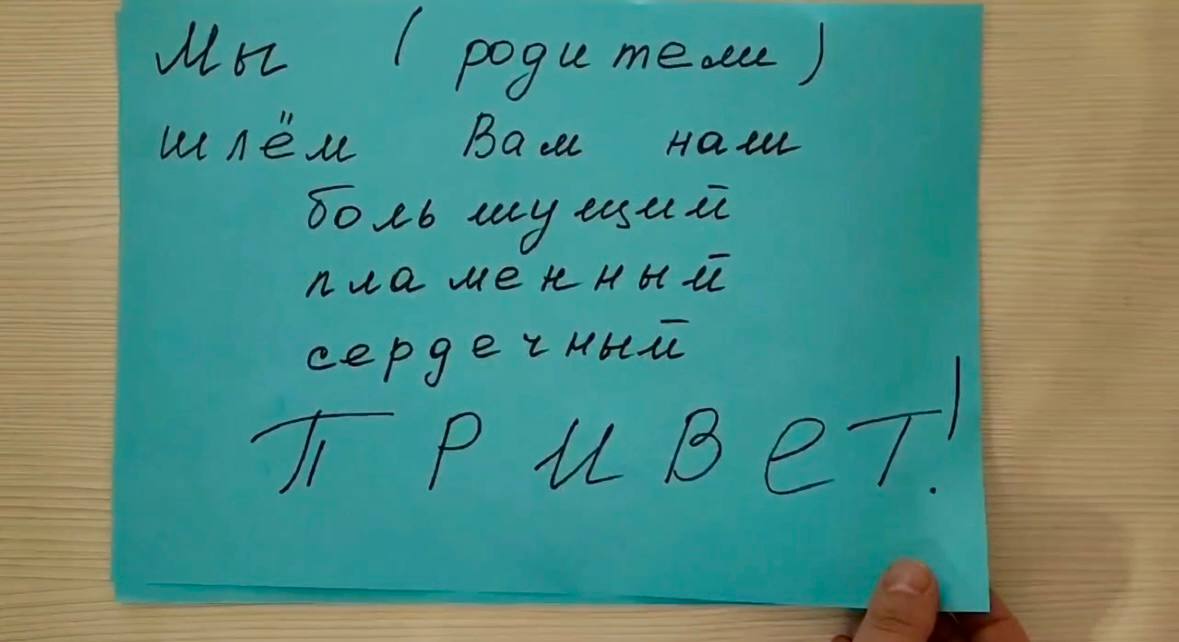 Мы (родители)
шлём Вам наш
большущий
пламенный
сердечный
ПРИВеТ!